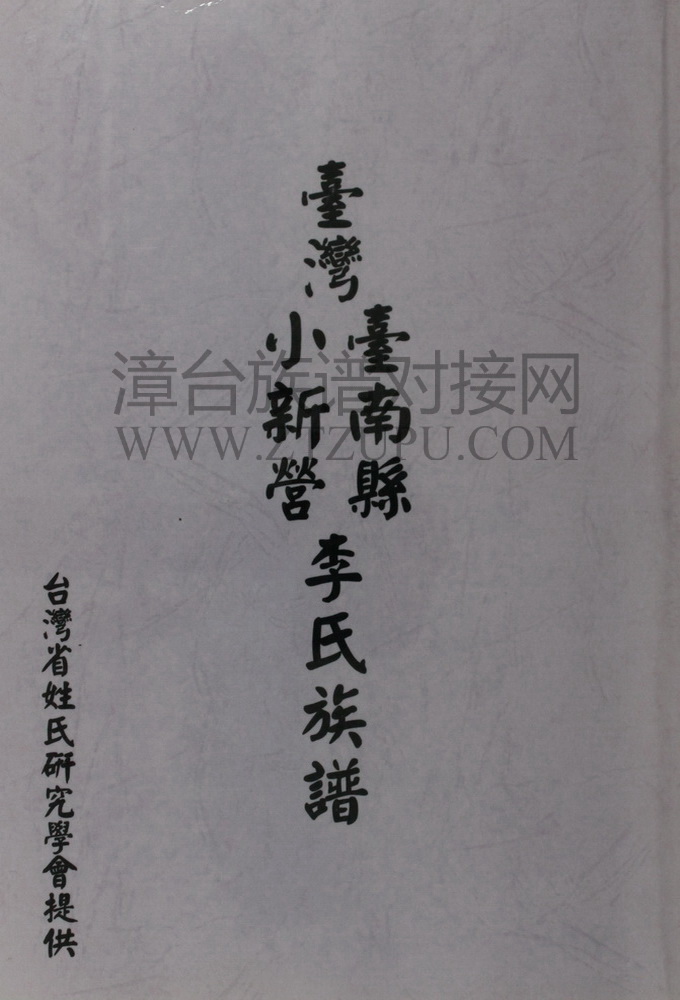 臺灣
臺南縣
小新營
李氏族譜
台灣省姓氏研究學會提供
漳台族谱对接网
WWW.ZTZUPU.COM